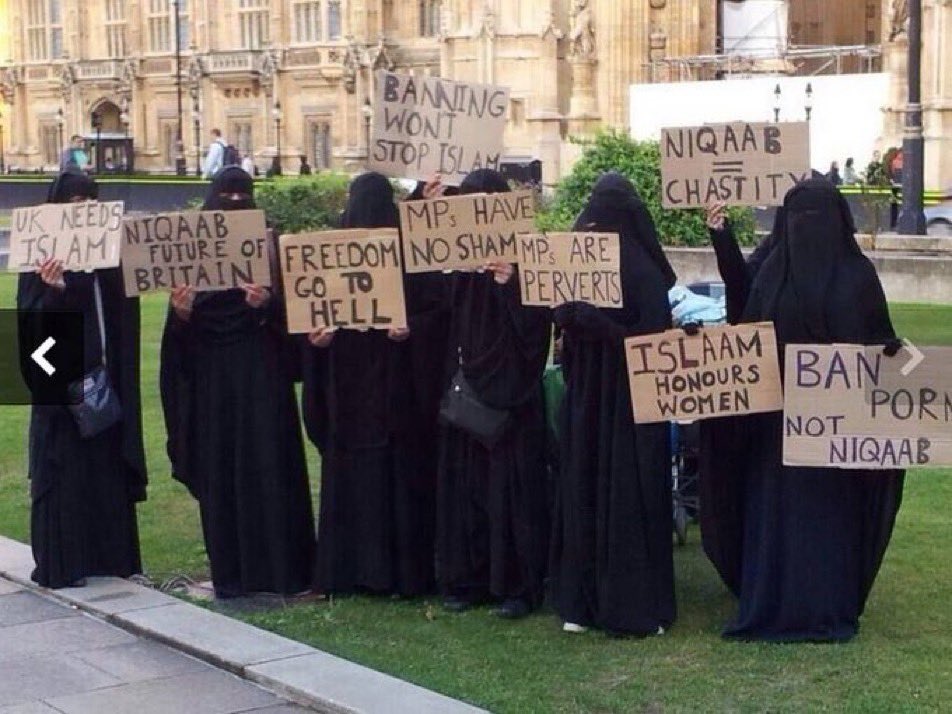 UK NEEDS
ISLAM!
NIQAAB
FUTURE OF
BRITAIN
FREEDOM
GO TO
HELL
BANNING
WONT
STOP ISLAM
MPs HAVE
NO SHAM
MPs ARE
PERVERTS
NIQAAB
=
CHASTITY
ISLAAM
HONOURS
WOMEN
BAN PORN
NOT
NIQAAB